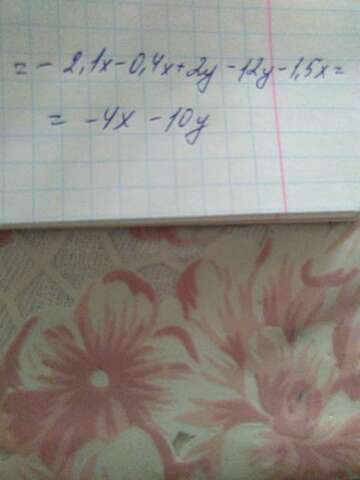 = - 2,1x - 0,4x + 2y - 12y - 1,5x =
= -4x - 10y